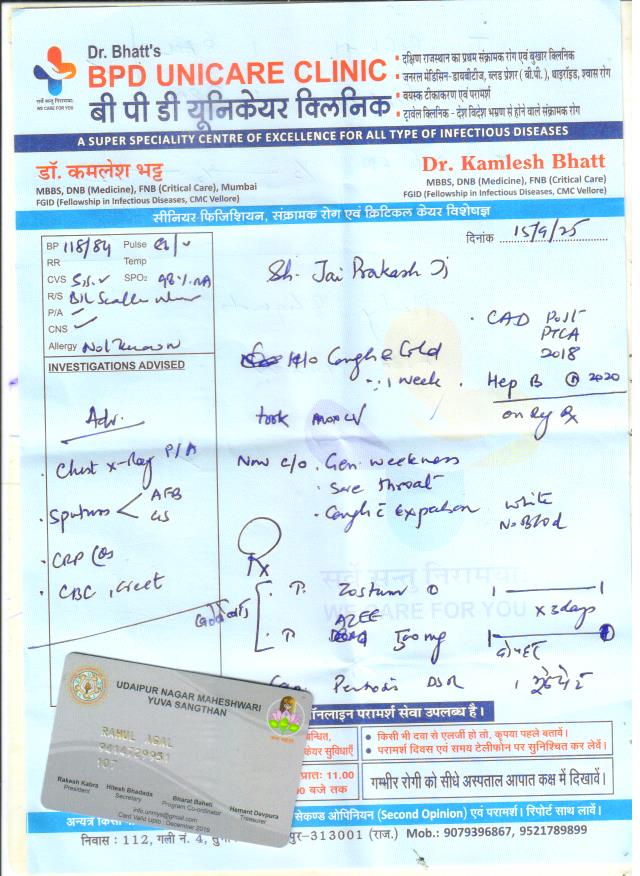 Dr. Bhatt's
BPD UNICARE CLINIC
बी पी डी यूनिकेयर क्लिनिक
सर्वे सन्तु निरामयाः
WE CARE FOR YOU
• दक्षिण राजस्थान का प्रथम संक्रामक रोग एवं बुखार क्लिनिक
• जनरल मेडिसिन-डायबीटीज, ब्लड प्रेशर ( बी.पी. ), थाइरॉइड, श्वास रोग
• वयस्क टीकाकरण एवं परामर्श
• ट्रावेल क्लिनिक - देश विदेश भ्रमण से होने वाले संक्रामक रोग
A SUPER SPECIALITY CENTRE OF EXCELLENCE FOR ALL TYPE OF INFECTIOUS DISEASES
डॉ. कमलेश भट्ट
MBBS, DNB (Medicine), FNB (Critical Care), Mumbai
FGID (Fellowship in Infectious Diseases, CMC Vellore)
Dr. Kamlesh Bhatt
MBBS, DNB (Medicine), FNB (Critical Care), Mumbai
FGID (Fellowship in Infectious Diseases, CMC Vellore)
सीनियर फिजिशियन, संक्रामक रोग एवं क्रिटिकल केयर विशेषज्ञ
दिनांक 15/9/25
BP 118/84 Pulse
RR Temp
CVS SPO2 98%
R/S
P/A
CNS
Allergy Not Known
INVESTIGATIONS ADVISED
Sh. Jai Prakash Ji
• CAD Post
PTCA
2018
H/O Cough & Cold
1 week
• Hep B 2020
took
on Rx
Adv.
• Chest x-Ray P/A
• Sputum AFB
CS
• CRP
• CBC, Creat
Now c/o • Gen weekness
• Sore throat
• Cough c expectoration white
No Blood
Rx
T. Zostum
x 3 days
T. AZEE 500 mg
Cap. DSR
सर्वे सन्तु निरामयाः
WE CARE FOR YOU
UDAIPUR NAGAR MAHESHWARI
YUVA SANGTHAN
RAHUL AGAL
9414729951
107
Rakesh Kabra
President
Hitesh Bhadada
Secretary
Bharat Baheti
Program Co-ordinator
Hemant Devpura
Treasurer
info.unmys@gmail.com
Card Valid Upto : December 2019
ऑनलाइन परामर्श सेवा उपलब्ध है।
केयर सुविधाएँ
प्रातः 11.00
बजे तक
• किसी भी दवा से एलर्जी हो तो, कृपया पहले बतावें।
• परामर्श दिवस एवं समय टेलीफोन पर सुनिश्चित कर लेवें।
गम्भीर रोगी को सीधे अस्पताल आपात कक्ष में दिखावें।
अन्यत्र
सेकण्ड ओपिनियन (Second Opinion) एवं परामर्श। रिपोर्ट साथ लावें।
निवास : 112, गली नं. 4,
पुर-313001 (राज.) Mob.: 9079396867, 9521789899